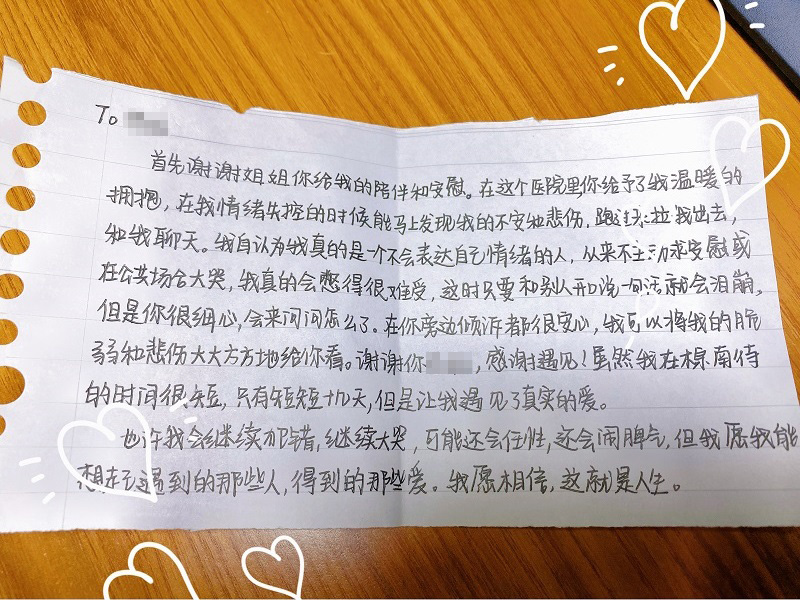 To
首先谢谢姐姐你给我的陪伴和安慰。在这个医院里,你给予了我温暖的
拥抱,在我情绪失控的时候能马上发现我的不安和悲伤,跑过来拉我出去,
和我聊天。我自认为我真的是一个不会表达自己情绪的人,从来不主动求安慰或
在公共场合大哭,我真的会憋得很难受,这时只要和别人开口说一句话就会泪崩,
但是你很细心,会来问问怎么了。在你旁边倾诉都很安心,我可以将我的脆
弱和悲伤大大方方地给你看。谢谢你,感谢遇见!虽然我在棕南待
的时间很短,只有短短十几天,但是让我遇见了真实的爱。
也许我会继续犯错,继续大哭,可能还会任性,还会闹脾气,但我愿我能
想起遇到的那些人,得到的那些爱。我愿相信,这就是人生。